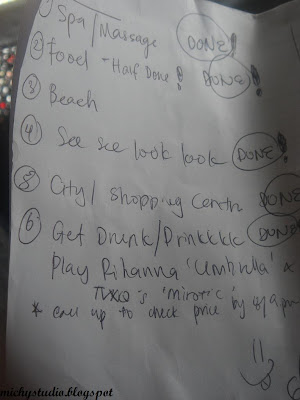 ① Spa/Massage DONE!
② Food - Half Done! DONE!
③ Beach
④ See see look look DONE!
⑤ City/ Shopping Centre DONE
⑥ Get Drunk/Drinkkkk DONE!
Play Rihanna 'Umbrella' &
TVXQ's 'Mirotic' by
* call up to check price
michystudio.blogspot